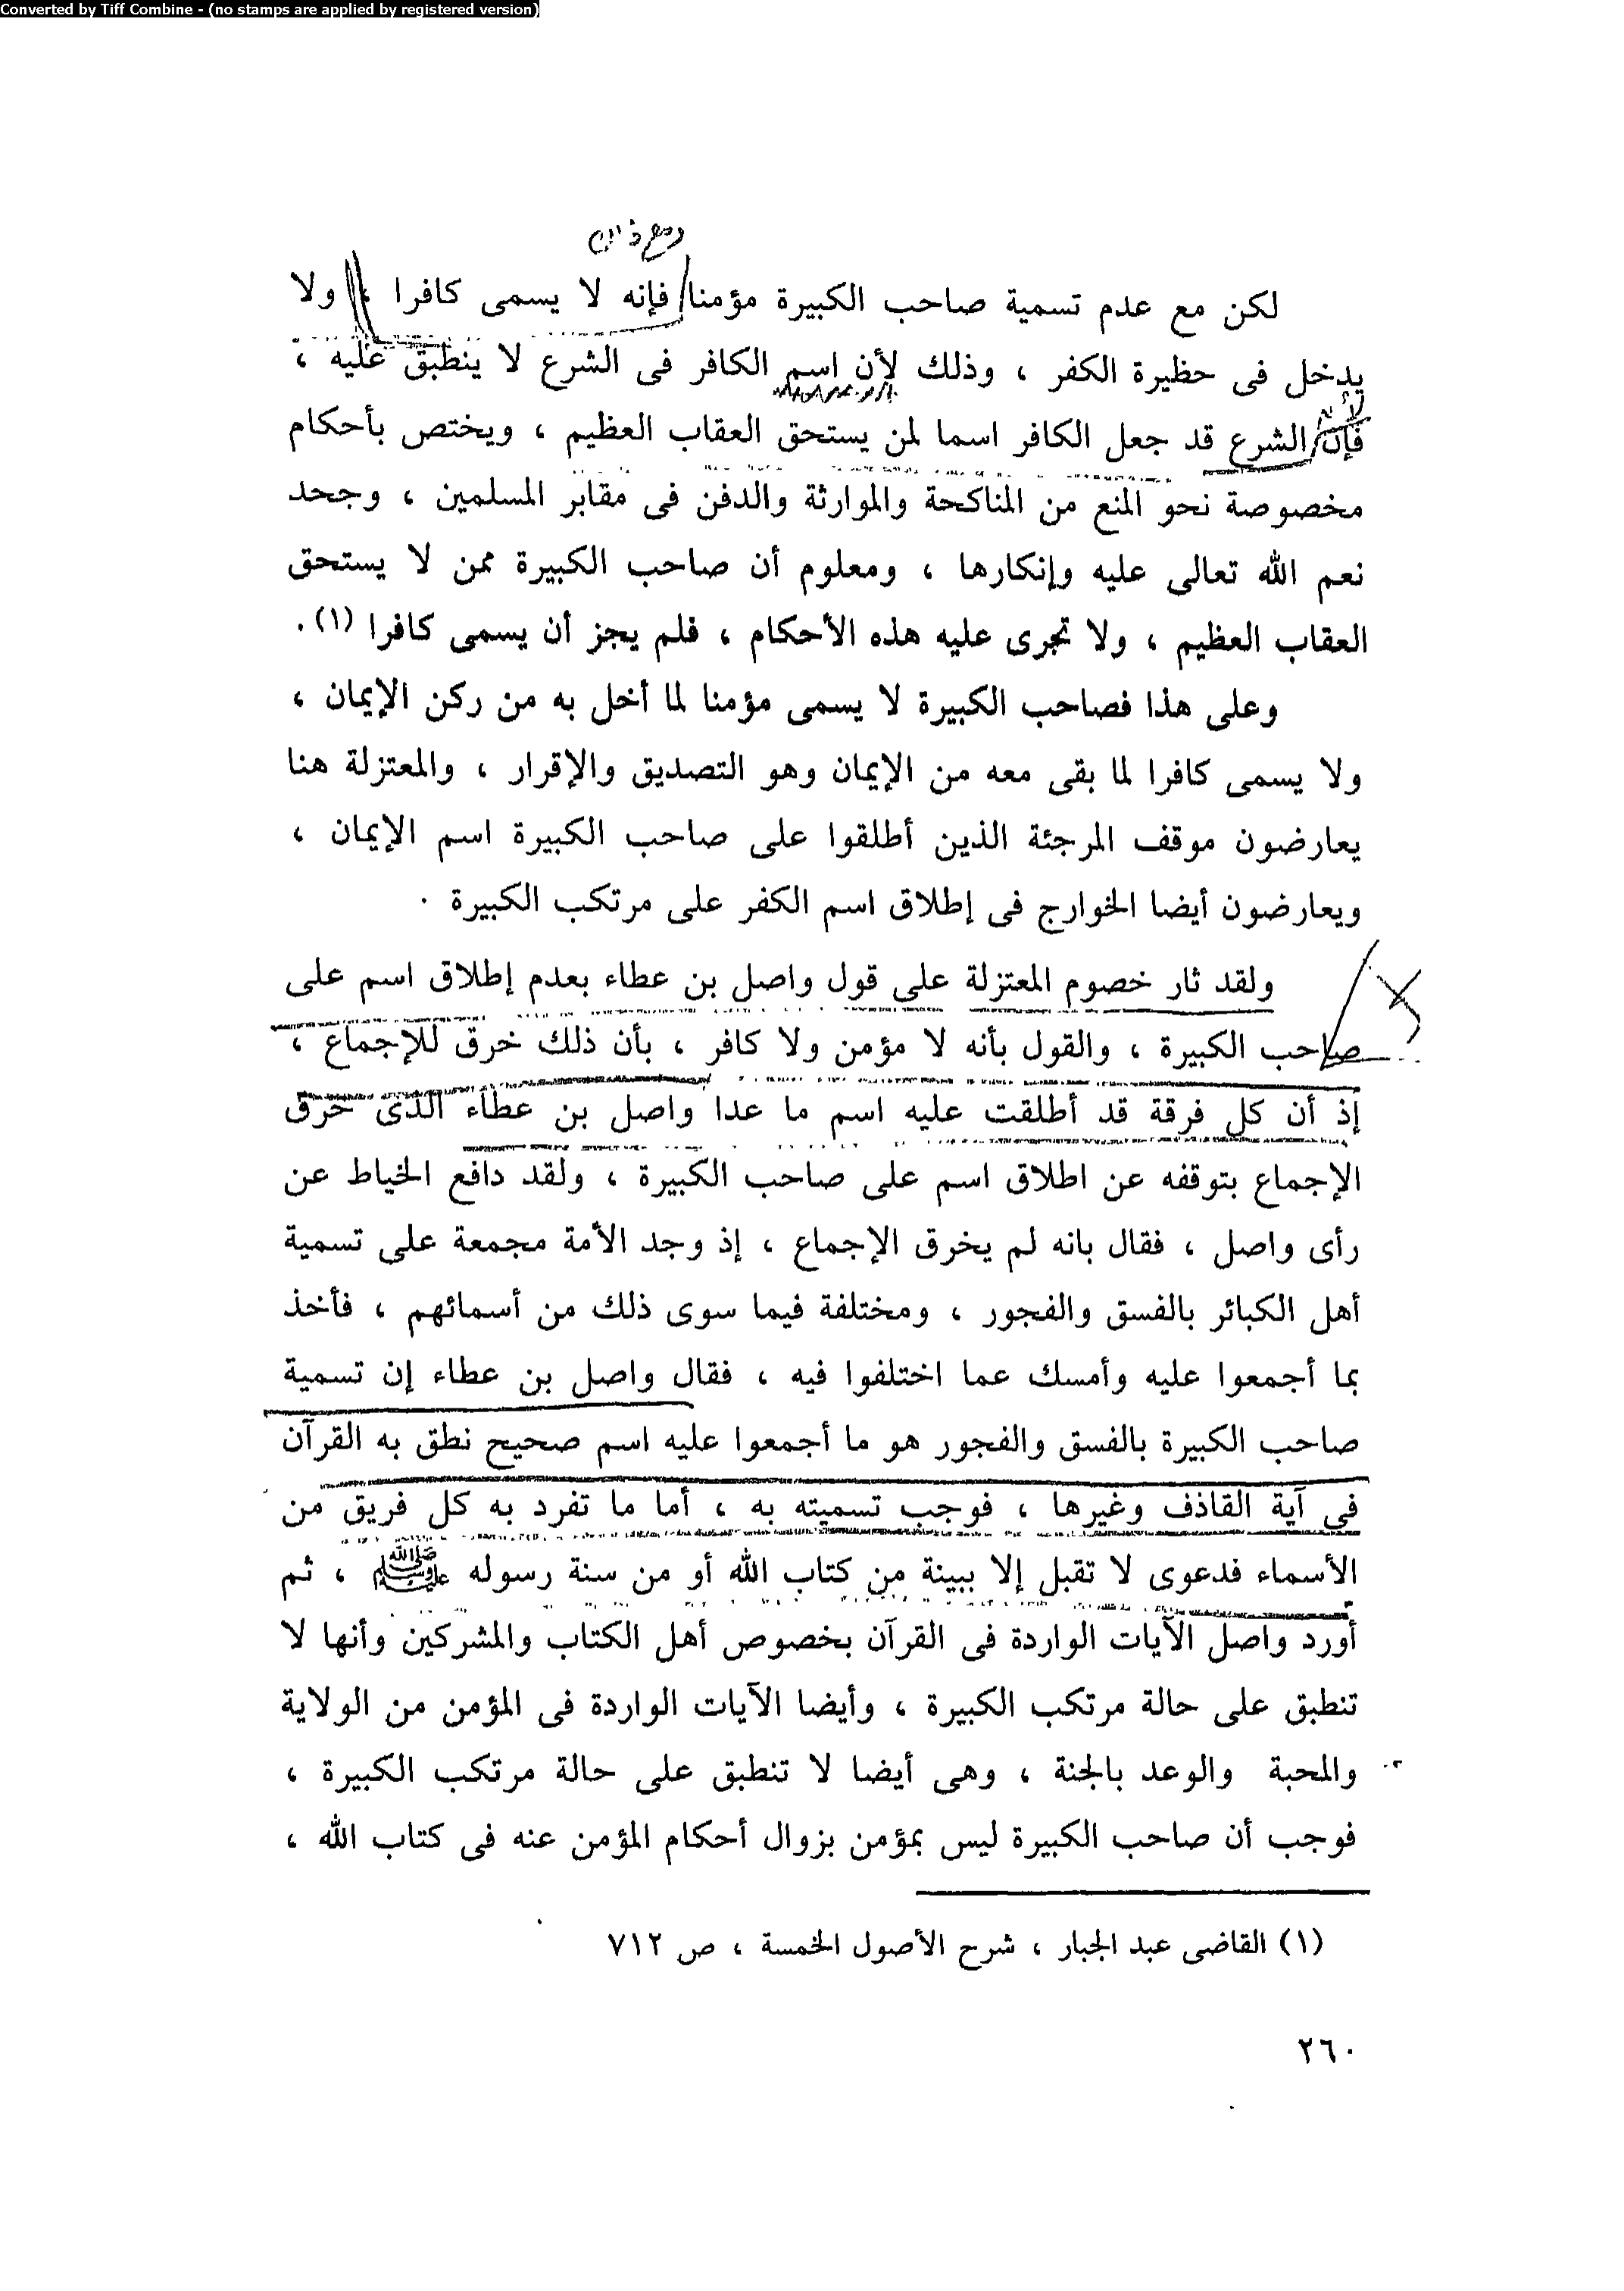 Converted by Tiff Combine - (no stamps are applied by registered version)
ومع ذلك
لكن مع عدم تسمية صاحب الكبيرة مؤمنا فإنه لا يسمى كافرا ، ولا
يدخل فى حظيرة الكفر ، وذلك لأن اسم الكافر فى الشرع لا ينطبق عليه ،
فإن الشرع قد جعل الكافر اسما لمن يستحق العقاب العظيم ، ويختص بأحكام
مخصوصة نحو المنع من المناكحة والموارثة والدفن فى مقابر المسلمين ، وجحد
نعم الله تعالى عليه وإنكارها ، ومعلوم أن صاحب الكبيرة ممن لا يستحق
العقاب العظيم ، ولا تجرى عليه هذه الأحكام ، فلم يجز أن يسمى كافرا (١) .
وعلى هذا فصاحب الكبيرة لا يسمى مؤمنا لما أخل به من ركن الإيمان ،
ولا يسمى كافرا لما بقى معه من الإيمان وهو التصديق والإقرار ، والمعتزلة هنا
يعارضون موقف المرجئة الذين أطلقوا على صاحب الكبيرة اسم الإيمان ،
ويعارضون أيضا الخوارج فى إطلاق اسم الكفر على مرتكب الكبيرة .
ولقد ثار خصوم المعتزلة على قول واصل بن عطاء بعدم إطلاق اسم على
صاحب الكبيرة ، والقول بأنه لا مؤمن ولا كافر ، بأن ذلك خرق للإجماع ،
إذ أن كل فرقة قد أطلقت عليه اسم ما عدا واصل بن عطاء الذى خرق
الإجماع بتوقفه عن اطلاق اسم على صاحب الكبيرة ، ولقد دافع الخياط عن
رأى واصل ، فقال بانه لم يخرق الإجماع ، إذ وجد الأمة مجمعة على تسمية
أهل الكبائر بالفسق والفجور ، ومختلفة فيما سوى ذلك من أسمائهم ، فأخذ
بما أجمعوا عليه وأمسك عما اختلفوا فيه ، فقال واصل بن عطاء إن تسمية
صاحب الكبيرة بالفسق والفجور هو ما أجمعوا عليه اسم صحيح نطق به القرآن
فى آية القاذف وغيرها ، فوجب تسميته به ، أما ما تفرد به كل فريق من
الأسماء فدعوى لا تقبل إلا ببينة من كتاب الله أو من سنة رسوله ﷺ ، ثم
أورد واصل الآيات الواردة فى القرآن بخصوص أهل الكتاب والمشركين وأنها لا
تنطبق على حالة مرتكب الكبيرة ، وأيضا الآيات الواردة فى المؤمن من الولاية
والمحبة والوعد بالجنة ، وهى أيضا لا تنطبق على حالة مرتكب الكبيرة ،
فوجب أن صاحب الكبيرة ليس بمؤمن بزوال أحكام المؤمن عنه فى كتاب الله ،
(١) القاضى عبد الجبار ، شرح الأصول الخمسة ، ص ٧١٢
٢٦٠